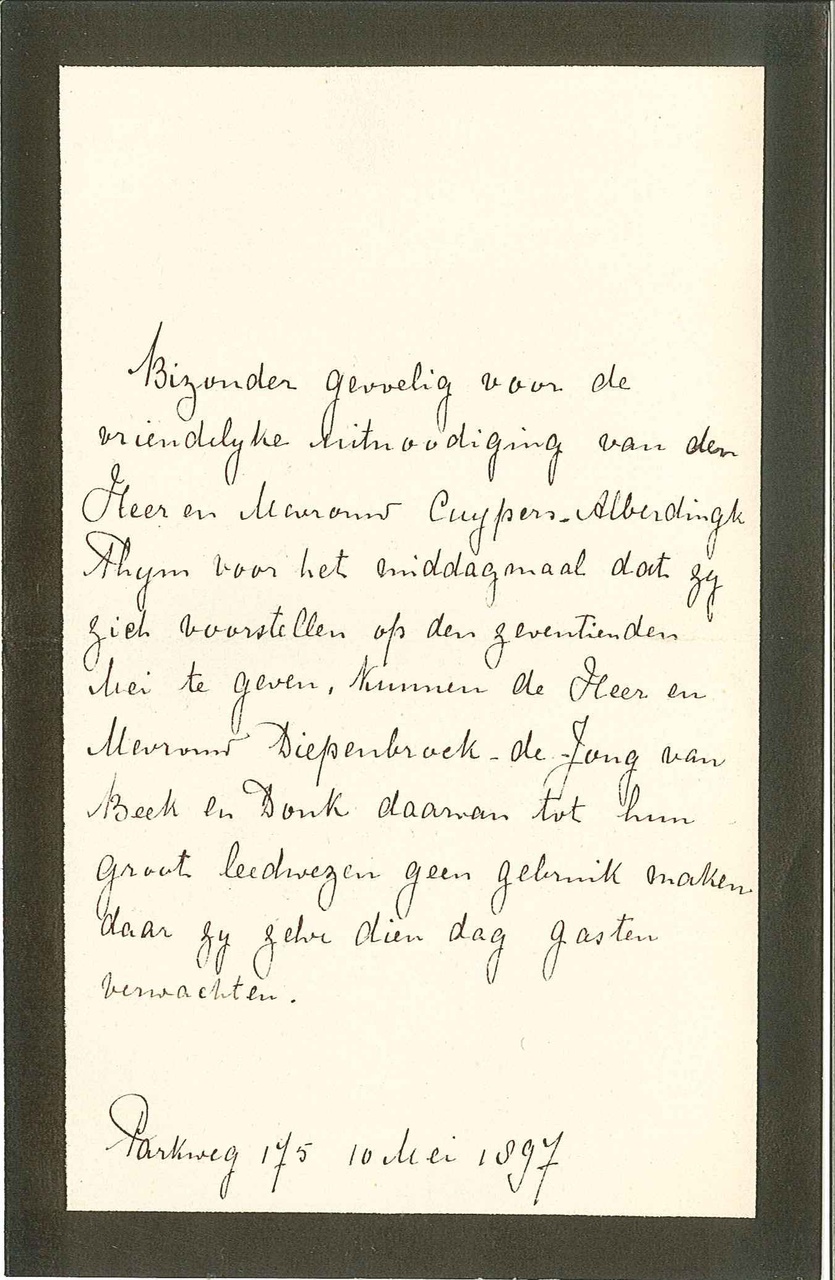 Bizonder gevoelig voor de
vriendelyke uitnoodiging van den
Heer en Mevrouw Cuypers-Alberdingk
Thym voor het middagmaal dat zy
zich voorstellen op den zeventienden
Mei te geven, kunnen de Heer en
Mevrouw Diepenbrock-de Jong van
Beek en Donk daarvan tot hun
groot leedwezen geen gebruik maken
daar zy zelve dien dag gasten
verwachten.
Parkweg 175 10 Mei 1897